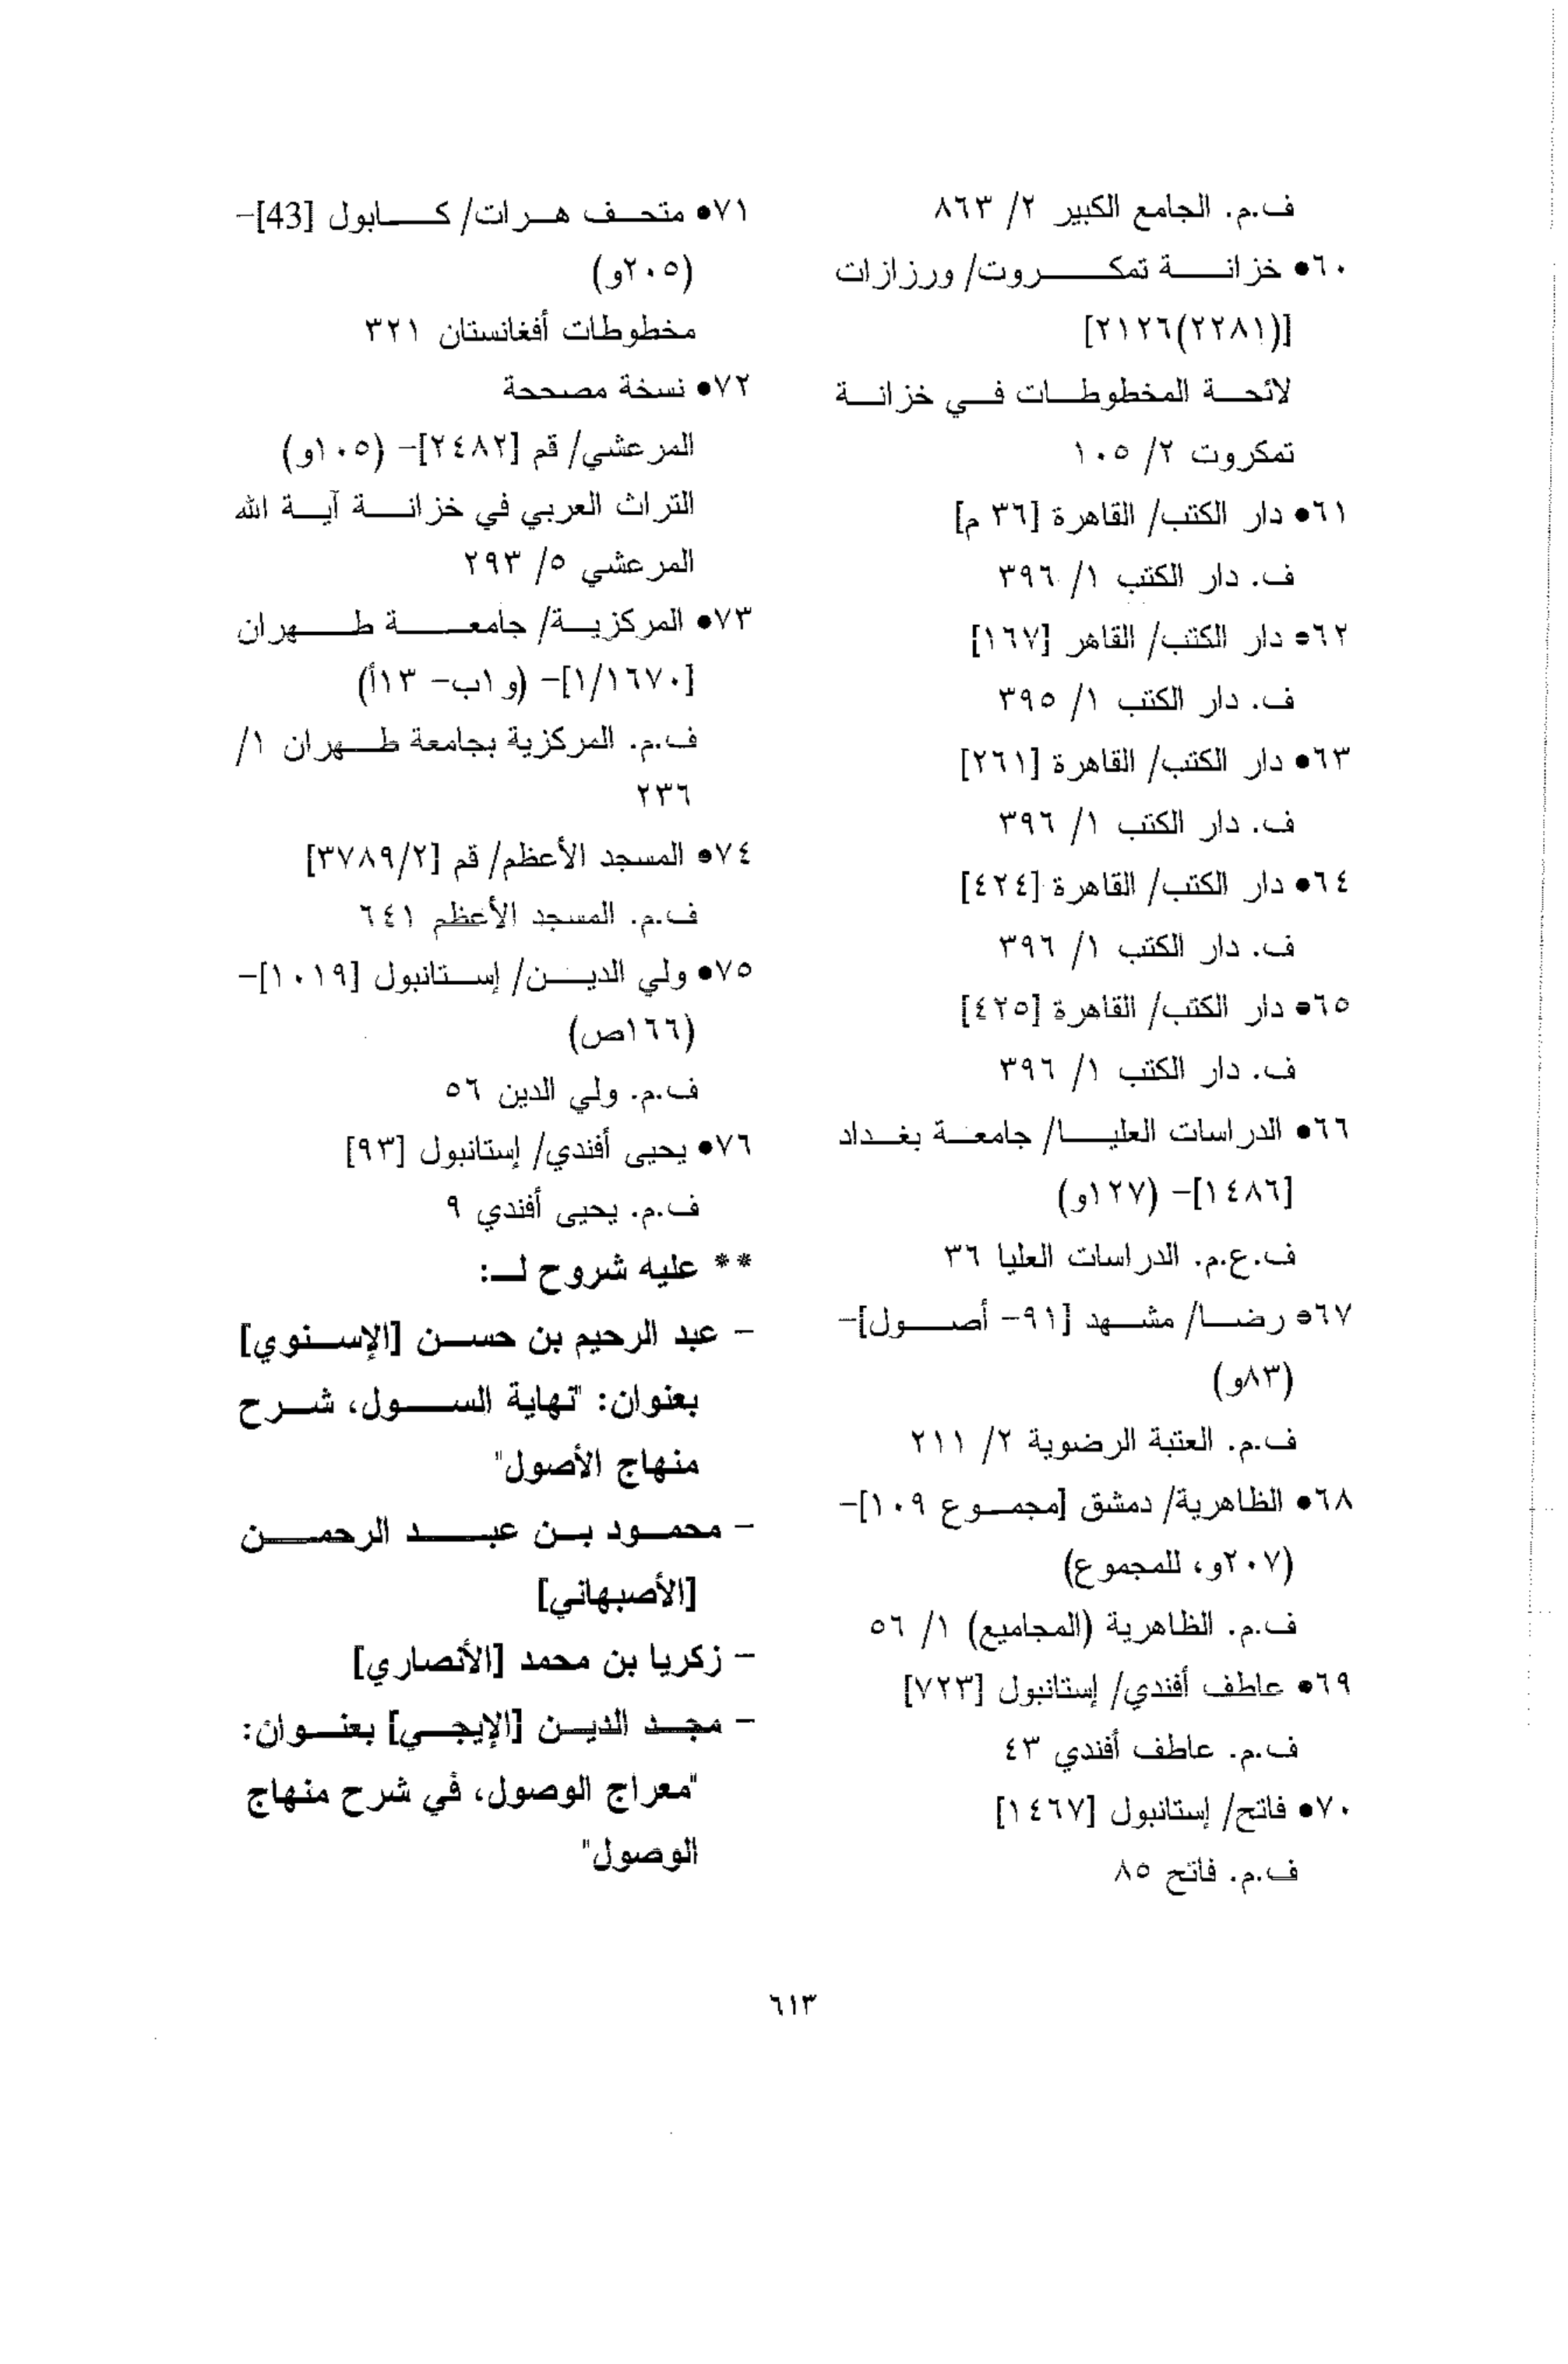 ف.م. الجامع الكبير ٢/ ٨٦٣
٦٠● خزانة تمكروت/ ورزازات
[(٢٢٨١)٢١٢٦]
لائحة المخطوطات في خزانة
تمكروت ٢/ ١٠٥
٦١● دار الكتب/ القاهرة [٣٦ م]
ف. دار الكتب ١/ ٣٩٦
٦٢● دار الكتب/ القاهر [١٦٧]
ف. دار الكتب ١/ ٣٩٥
٦٣● دار الكتب/ القاهرة [٢٦١]
ف. دار الكتب ١/ ٣٩٦
٦٤● دار الكتب/ القاهرة [٤٢٤]
ف. دار الكتب ١/ ٣٩٦
٦٥● دار الكتب/ القاهرة [٤٢٥]
ف. دار الكتب ١/ ٣٩٦
٦٦● الدراسات العليا/ جامعة بغداد
[١٤٨٦]- (١٢٧و)
ف.ع.م. الدراسات العليا ٣٦
٦٧● رضا/ مشهد [٩١- أصول]-
(٨٣و)
ف.م. العتبة الرضوية ٢/ ٢١١
٦٨● الظاهرية/ دمشق [مجموع ١٠٩]-
(٢٠٧و، للمجموع)
ف.م. الظاهرية (المجاميع) ١/ ٥٦
٦٩● عاطف أفندي/ إستانبول [٧٢٣]
ف.م. عاطف أفندي ٤٣
٧٠● فاتح/ إستانبول [١٤٦٧]
ف.م. فاتح ٨٥
٧١● متحف هرات/ كابول [43]-
(٢٠٥و)
مخطوطات أفغانستان ٣٢١
٧٢● نسخة مصححة
المرعشي/ قم [٢٤٨٢]- (١٠٥و)
التراث العربي في خزانة آية الله
المرعشي ٥/ ٢٩٣
٧٣● المركزية/ جامعة طهران
[١/١٦٧٠]- (و١ب- ١٣أ)
ف.م. المركزية بجامعة طهران ١/
٢٣٦
٧٤● المسجد الأعظم/ قم [٣٧٨٩/٢]
ف.م. المسجد الأعظم ٦٤١
٧٥● ولي الدين/ إستانبول [١٠١٩]-
(١٦٦ص)
ف.م. ولي الدين ٥٦
٧٦● يحيى أفندي/ إستانبول [٩٣]
ف.م. يحيى أفندي ٩
** عليه شروح لـ:
- عبد الرحيم بن حسن [الإسنوي]
بعنوان: "نهاية السول، شرح
منهاج الأصول"
- محمود بن عبد الرحمن
[الأصبهاني]
- زكريا بن محمد [الأنصاري]
- مجد الدين [الإيجي] بعنوان:
"معراج الوصول، في شرح منهاج
الوصول"
٦١٣